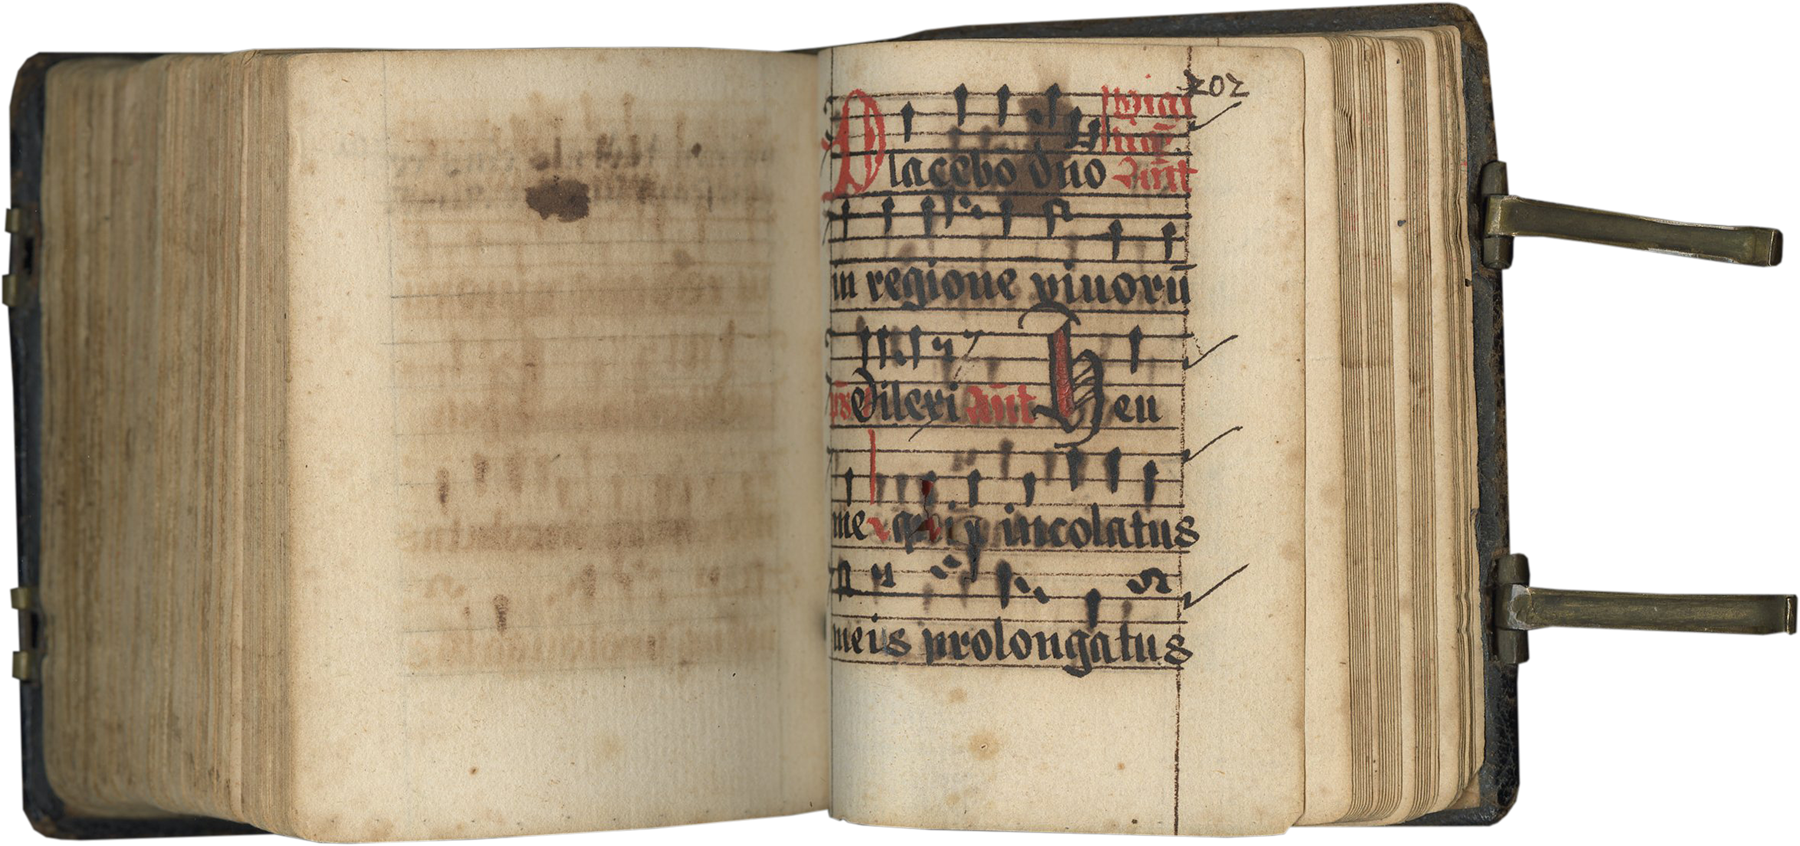 202
Placebo dn̄o Ant̄
in regione viuorū
ps Dilexi Ant̄ Heu
me quia incolatus
meis prolongatus